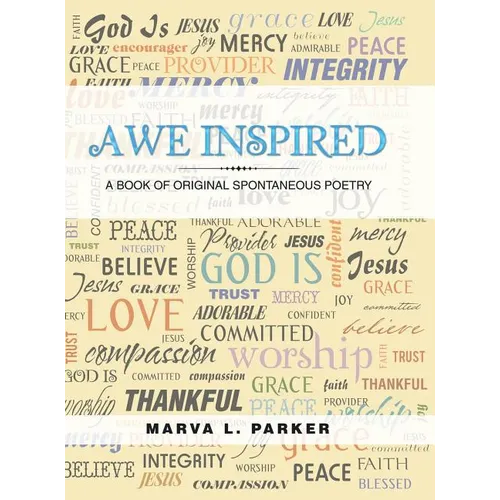 FAITH God Is JESUS grace LOVE Jesus
LOVE encourager joy MERCY believe ADMIRABLE PEACE
GRACE PEACE PROVIDER INTEGRITY
FAITH MERCY
love WORSHIP mercy integrity FAITH
AWE INSPIRED
A BOOK OF ORIGINAL SPONTANEOUS POETRY
CONFIDENT COMPASSION
blessed faith love joy
THANKFUL ADORABLE THANKFUL
PEACE Provider JESUS confident mercy
TRUST INTEGRITY WORSHIP
BELIEVE GOD IS Jesus
Jesus GRACE TRUST MERCY JOY GRACE
LOVE ADORABLE CONFIDENT committed
TRUST COMMITTED believe
compassion worship FAITH TRUST
GOD IS COMMITTED compassion
GRACE faith THANKFUL
worship THANKFUL PEACE PROVIDER
MARVA L. PARKER
mercy PROVIDER joy grace
BELIEVE INTEGRITY WORSHIP PEACE FAITH
JESUS COMPASSION BLESSED